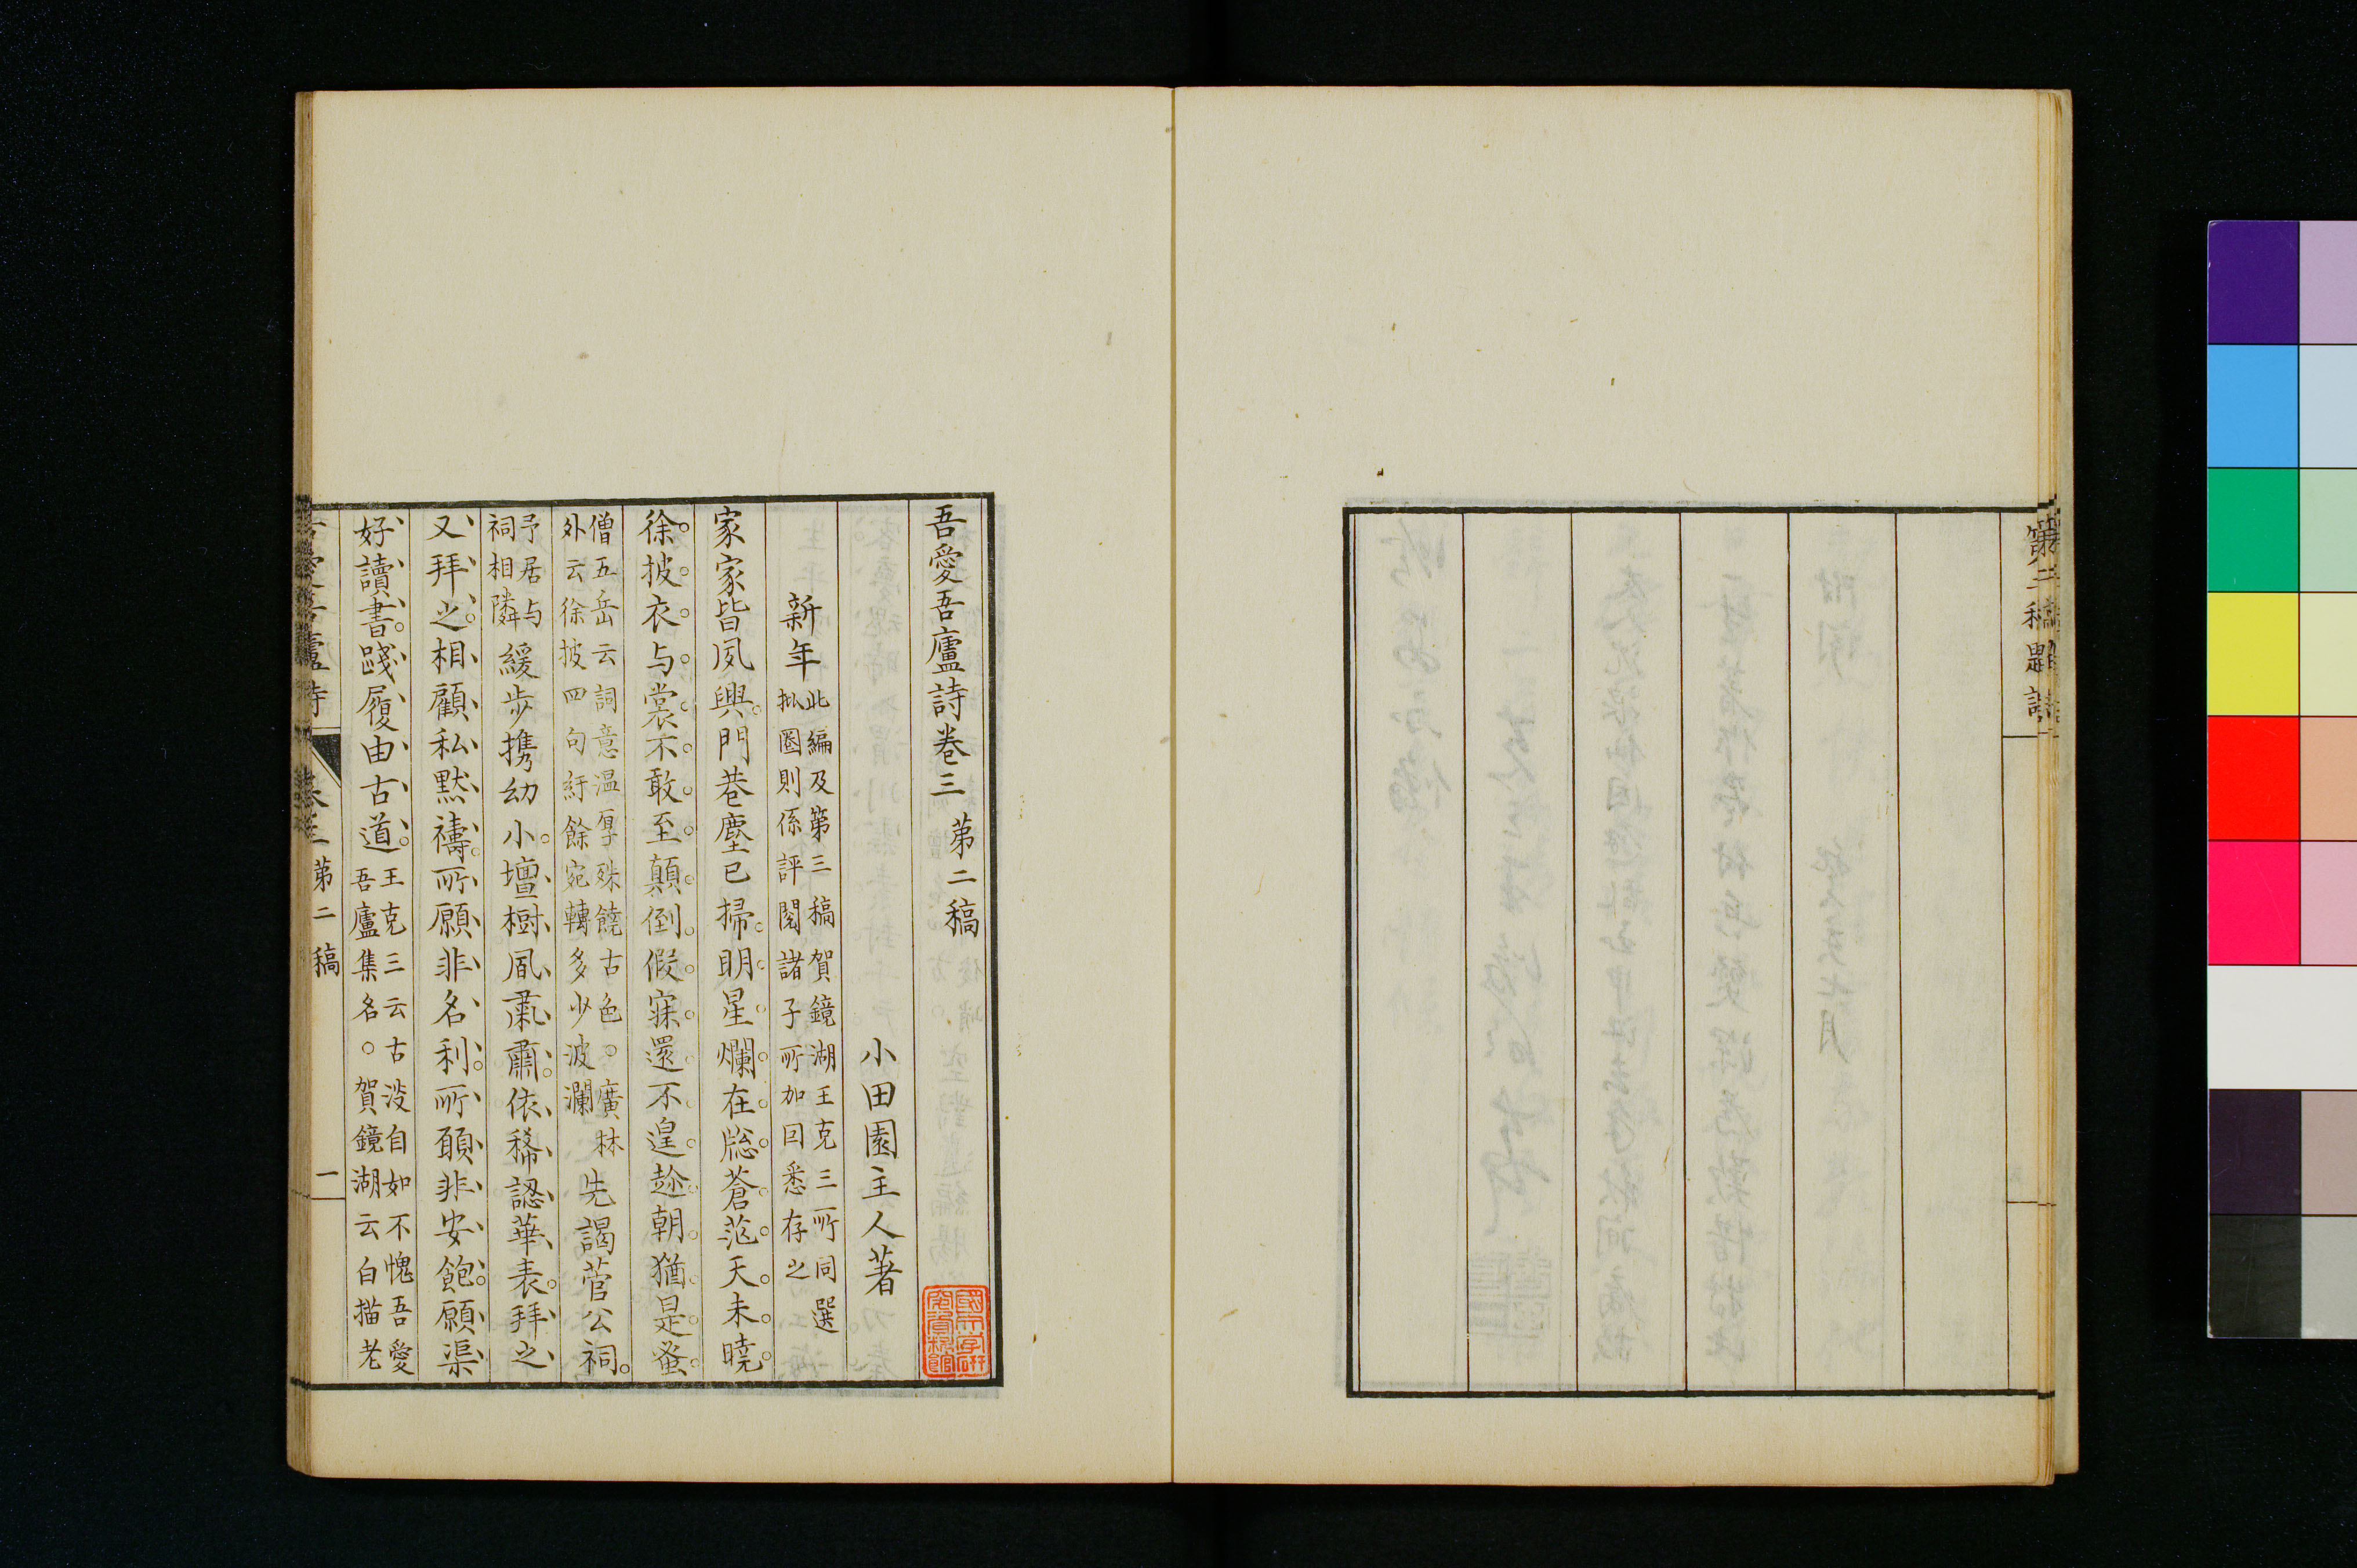 第二稿題詩
吾愛吾廬詩卷三　第二稿
小田園主人著
新年　此編及第三稿賀鏡湖王克三所同選
批圈則係評閱諸子所加囙悉存之
家家皆夙興。門巷塵已掃。明星。爛在。牕。蒼茫。天。未。曉。
徐。披。衣。与。裳。不。敢。至。顛。倒。假。寐。還。不。遑。趁。朝。猶。是。蚤。
僧五岳云詞意溫厚殊饒古色。廣林
外云徐披四句紆餘宛轉多少波瀾
先謁菅公祠。
予居与
祠相隣
緩步携幼小。壇樹風肅肅。依稀認華表。拜之
又拜之。相顧私黙禱。所願非名利。所願非安飽。願渠
好讀書。踐履由古道。
王克三云古淡自如不愧吾愛
吾廬集名。賀鏡湖云白描老
吾愛吾廬詩　卷三　第二稿　一